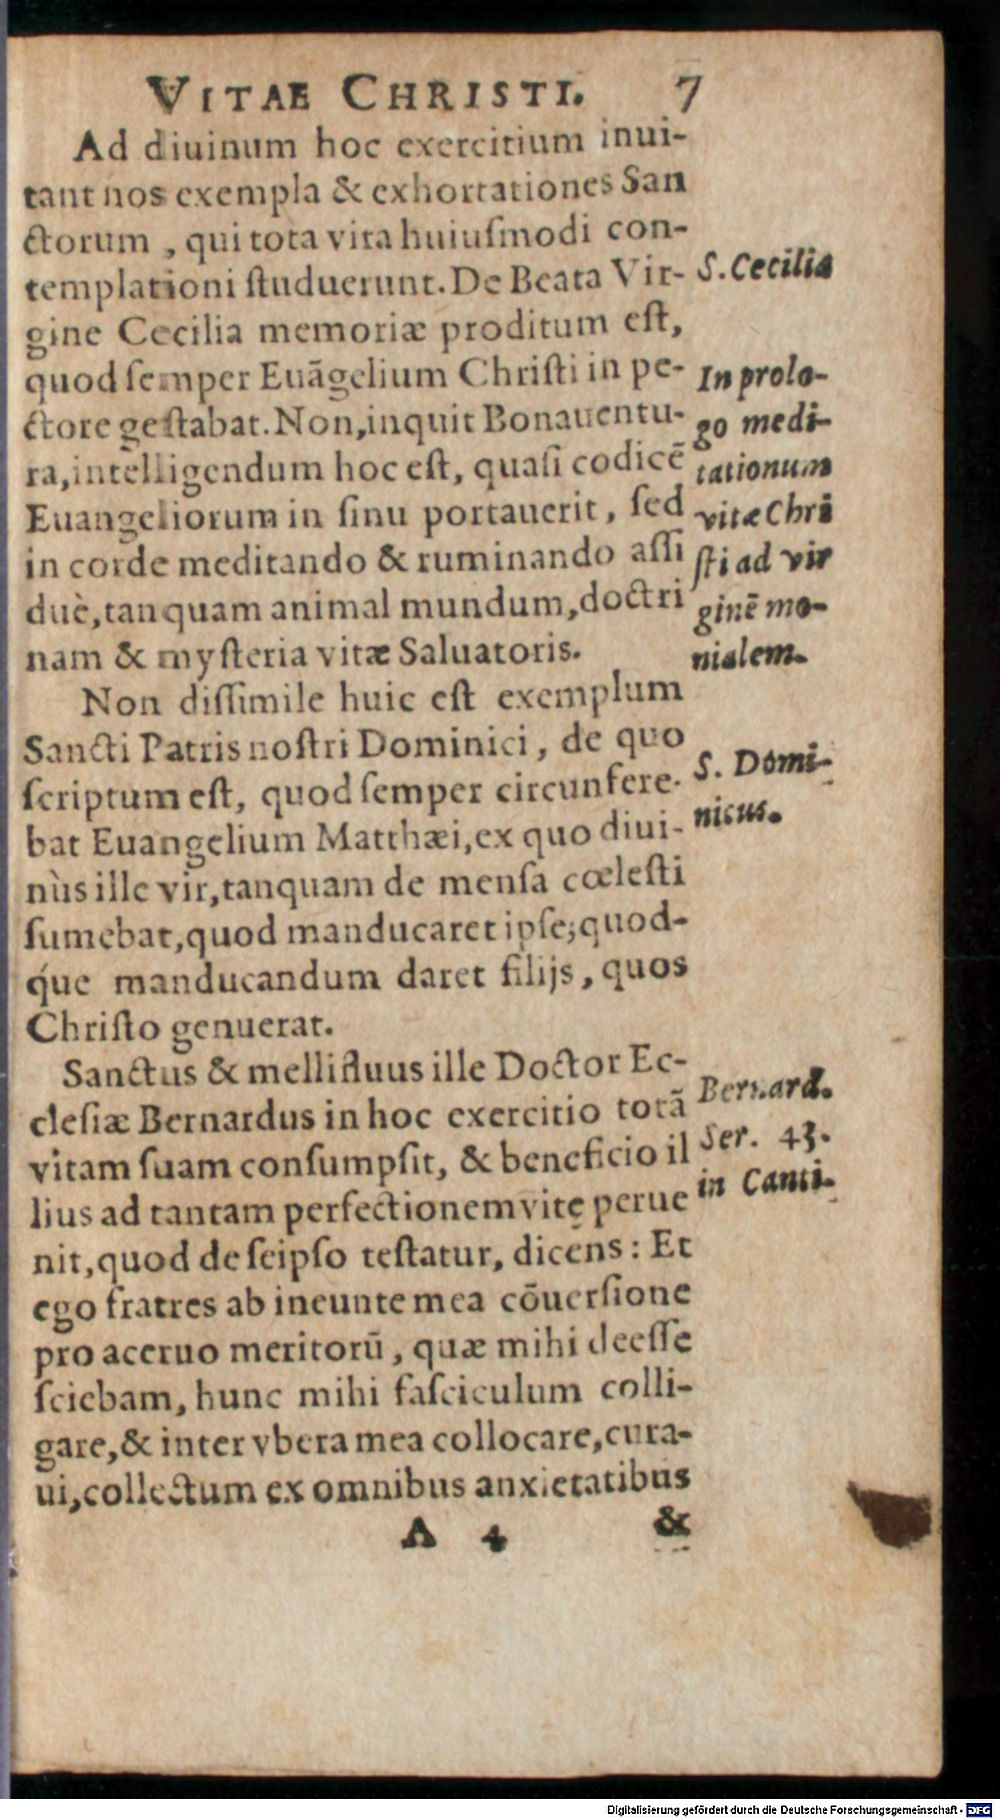 VITAE CHRISTI. 7
Ad diuinum hoc exercitium inui-
tant nos exempla & exhortationes San
ctorum, qui tota vita huiuſmodi con-
templationi ſtuduerunt. De Beata Vir-
gine Cecilia memoriæ proditum eſt,
quod ſemper Euãgelium Chriſti in pe-
ctore geſtabat. Non, inquit Bonauentu-
ra, intelligendum hoc eſt, quaſi codicẽ
Euangeliorum in ſinu portauerit, ſed
in corde meditando & ruminando aſſi
duè, tanquam animal mundum, doctri
nam & myſteria vitæ Saluatoris.
Non diſſimile huic eſt exemplum
Sancti Patris noſtri Dominici, de quo
ſcriptum eſt, quod ſemper circunfere-
bat Euangelium Matthæi, ex quo diui-
nùs ille vir, tanquam de menſa cœleſti
ſumebat, quod manducaret ipſe; quod-
q́ue manducandum daret filijs, quos
Chriſto genuerat.
Sanctus & mellifluus ille Doctor Ec-
cleſiæ Bernardus in hoc exercitio totã
vitam ſuam conſumpſit, & beneficio il
lius ad tantam perfectionem vitę perue
nit, quod de ſeipſo teſtatur, dicens: Et
ego fratres ab ineunte mea cõuerſione
pro aceruo meritorũ, quæ mihi deeſſe
ſciebam, hunc mihi faſciculum colli-
gare, & inter vbera mea collocare, cura-
ui, collectum ex omnibus anxietatibus
A 4 &
S. Cecilia
In prolo-
go medi-
tationum
vitæ Chri
ſti ad vir
ginẽ mo-
nialem.
S. Domi-
nicus.
Bernard.
Ser. 43.
in Canti.
Digitalisierung gefördert durch die Deutsche Forschungsgemeinschaft - DFG